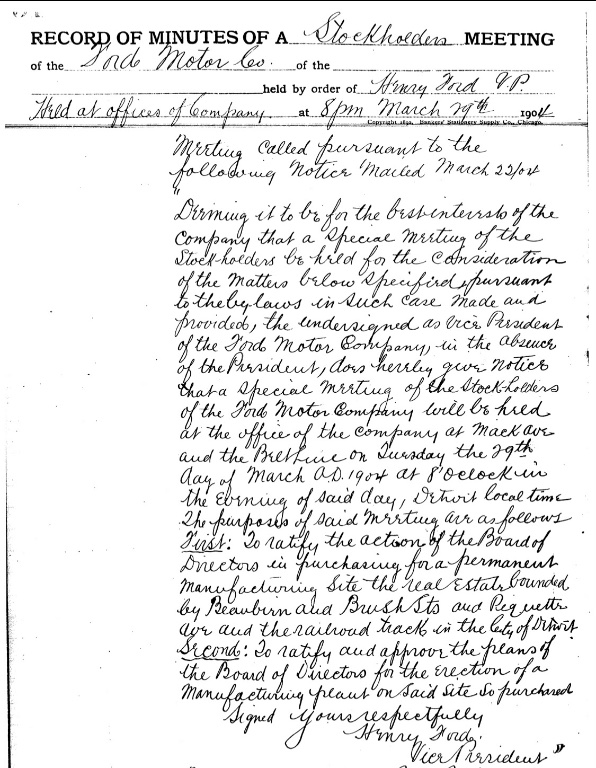 RECORD OF MINUTES OF A Stockholders MEETING
of the Ford Motor Co. of the
held by order of Henry Ford V.P.
Held at offices of Company at 8pm March 29th 1904
Copyright 1890, Bankers' Stationery Supply Co., Chicago.
Meeting called pursuant to the
following Notice Mailed March 22/04
"
Deeming it to be for the best interests of the
Company that a Special Meeting of the
Stockholders be held for the Consideration
of the Matters below Specified, pursuant
to the bylaws in Such Case Made and
provided, the undersigned as Vice President
of the Ford Motor Company, in the absence
of the President, does hereby give Notice
that a Special Meeting of the Stockholders
of the Ford Motor Company will be held
at the office of the Company at Mack ave
and the Belt Line on Tuesday the 29th
day of March A.D. 1904 at 8 'Oclock in
the Evening of said day, Detroit local time
The purposes of said Meeting are as follows
First: To ratify the action of the Board of
Directors in purchasing for a permanent
Manufacturing Site the real Estate bounded
by Beaubien and Brush Sts and Piquette
ave and the railroad track in the City of Detroit
Second: To ratify and approve the plans of
the Board of Directors for the Erection of a
Manufacturing plant on Said Site So purchased
Signed Yours respectfully
Henry Ford.
Vice President "